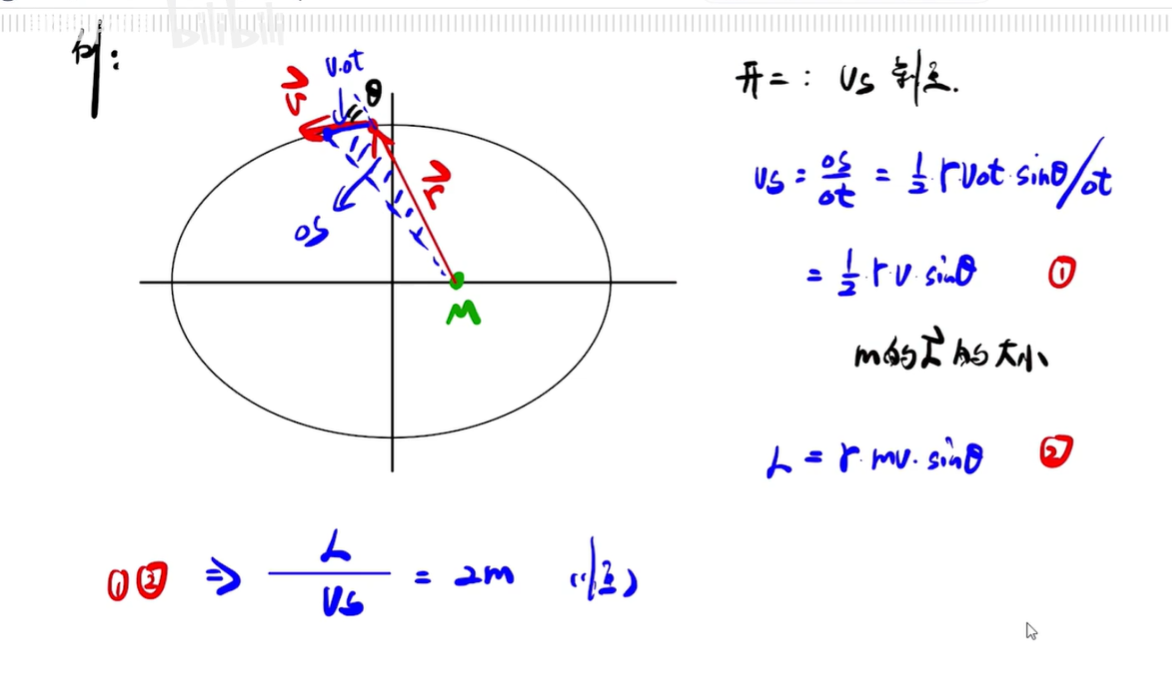 bilibili
例:
v⃗
v·Δt
θ
r⃗
ΔS
M
开二: vs 守恒.
vs = ΔS/Δt = 1/2 · r v Δt · sinθ / Δt
= 1/2 · r v · sinθ ①
m的L⃗的大小
L = r · mv · sinθ ②
①② ⇒ L/vs = 2m (恒)